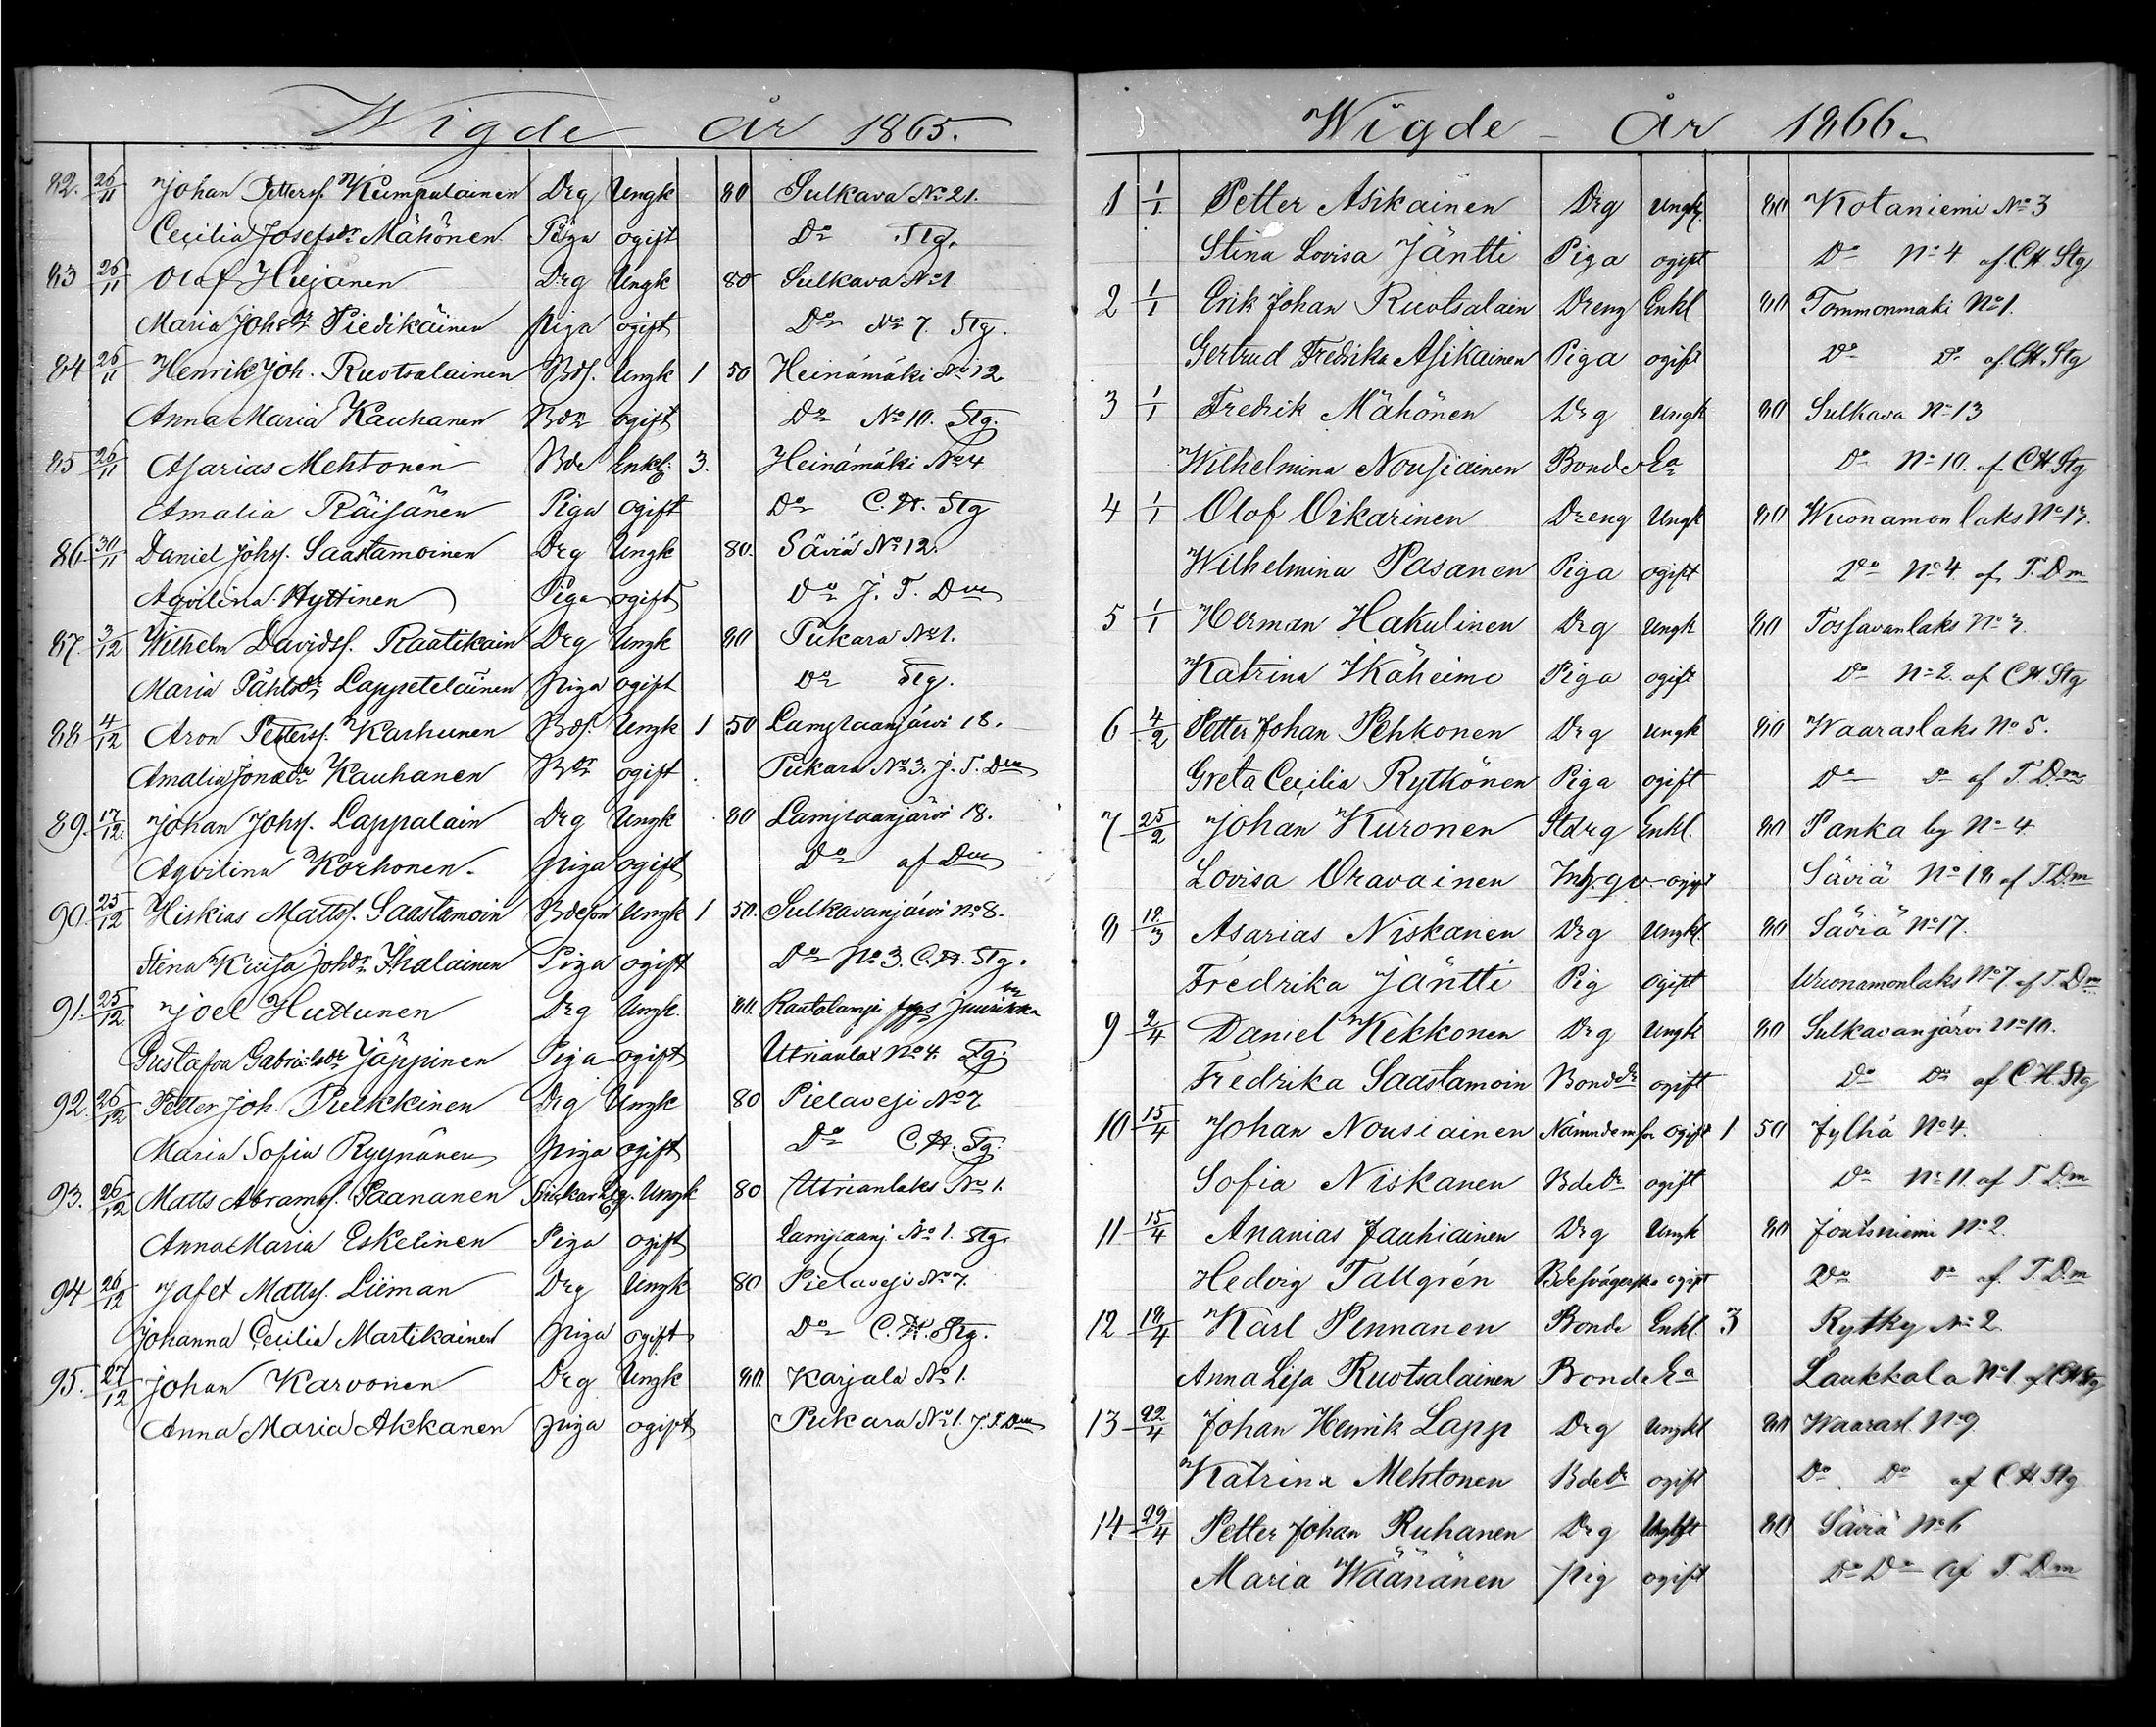 Wigde år 1865.
82. 26/11 Johan Petterss. Kumpulainen Drg Ungk 80 Sulkava No 21.
Cecilia Josefsdr Mähönen Piga ogift Do Stg.
83 26/11 Olof Hujanen Drg Ungk 80 Sulkava No 1.
Maria Johsdr Piedikäinen piga ogift Do No 7. Stg.
84 26/11 Henrik Joh. Ruotsalainen Bds. Ungk 1 50 Heinämäki No 12
Anna Maria Kauhanen Bdr ogift Do No 10. Stg.
85 26/11 Asarias Mehtonen Bde Enkl. 3. Heinämäki No 4.
Amalia Räisänen Piga ogift Do C.H. Stg
86 30/11 Daniel Johss. Saastamoinen Drg Ungk 80. Säviä No 12.
Aqvilina Hyttinen Piga ogift Do J. T. Dm
87. 3/12 Wilhelm Davidss. Raatikain Drg Ungk 80 Pukara No 1.
Maria Påhlsdr Lappeteläinen piga ogift Do Stg.
88 4/12 Aron Petterss. Karhunen Bds. Ungk 1 50 Lampaanjärvi 18.
Amalia Jonaedr Kauhanen Bdr ogift. Pukara No 3. J. T. Dm
89. 17/12. Johan Johss. Lappalain Drg Ungk 80 Lampaanjärvi 18.
Aqvilina Korhonen. piga ogift Do af Dm
90. 25/12 Hiskias Mattss. Saastamoin Bdeson Ungk 1 50. Sulkavanjärvi No 8.
Stina Kaisa Johdr Ihalainen Piga ogift Do No 3. C.H. Stg.
91. 25/12. Joel Huttunen Drg Ungk. 80. Rautalampi Juurikka by
Gustafva Gabrielsdr Jäppinen Piga ogift Utrianlax No 4. Stg.
92. 26/12 Petter Joh. Pulkkinen Drg Ungk 80 Pielavesi No 7
Maria Sofia Ryynänen piga ogift Do C.H. Stg.
93. 26/12 Matts Abramss. Paananen Ungk 80 Utrianlaks No 1.
Anna Maria Eskelinen Piga ogift Lampaanj No 1. Stg.
94 26/12 Jafet Mattss. Liiman Drg Ungk 80 Pielavesi No 7.
Johanna Cecilia Martikainen piga ogift Do C.H. Stg.
95. 27/12 Johan Karvonen Drg Ungk 80. Karjala No 1.
Anna Maria Akkanen piga ogift Pukara No 1. J. T. Dm
Wigde - År 1866.
1 1/1 Petter Asikainen Drg Ungk. 80 Kotaniemi No 3
Stina Lovisa Jäntti Piga ogift Do No 4 af C.H. Stg
2 1/1 Erik Johan Ruotsalain Dreng Enkl 80 Tommonmäki No 1.
Gertrud Fredrika Asikainen Piga ogift Do Do af C.H. Stg
3 1/1 Fredrik Mähönen Drg Ungk 80 Sulkava No 13
Wilhelmina Nousiainen Bonde Ea Do No 10. af C.H. Stg
4 1/1 Olof Oikarinen Dreng Ungk 80 Wuonamonlaks No 13.
Wilhelmina Pasanen Piga ogift Do No 4 af T. Dm
5 1/1 Herman Hakulinen Drg Ungk 80 Tossavanlaks No 3.
Katrina Ikäheimo Piga ogift Do No 2. af C.H. Stg
6 4/2 Petter Johan Pehkonen Drg Ungk 80 Waaraslaks No 5.
Greta Cecilia Rytkönen Piga ogift Do Do af T. Dm
7 25/2 Johan Kuronen Stdrg Enkl. 80 Panka by No 4
Lovisa Oravainen Inh.qv. ogift Säviä No 18 af T. Dm
8 18/3 Asarias Niskanen Drg Ungkl. 80 Säviä No 17.
Fredrika Jäntti Pig ogift Wuonamonlaks No 7. af T. Dm
9 2/4 Daniel Kekkonen Drg Ungk 80 Sulkavanjärvi No 10.
Fredrika Saastamoin Bondedr ogift Do Do af C.H. Stg
10 15/4 Johan Nousiainen Nämndemson ogift 1 50 Jylhä No 4.
Sofia Niskanen Bdedr ogift Do No 11. af T. Dm
11 15/4 Ananias Jauhiainen Drg Ungk 80 Joutsniemi No 2.
Hedvig Tallgrén Bdesvägerska ogift Do Do af T. Dm
12 18/4 Karl Pennanen Bonde Enkl. 3 Rytky No 2
Anna Lisa Ruotsalainen Bonde Ea Laukkala No 1. af C.H. Stg
13 22/4 Johan Henrik Lapp Drg Ungkl 80 Waarasl. No 9
Katrina Mehtonen Bdedr ogift Do. Do af C.H. Stg
14 29/4 Petter Johan Ruhanen Drg 80 Säviä No 6
Maria Wäänänen pig ogift Do Do af T. Dm